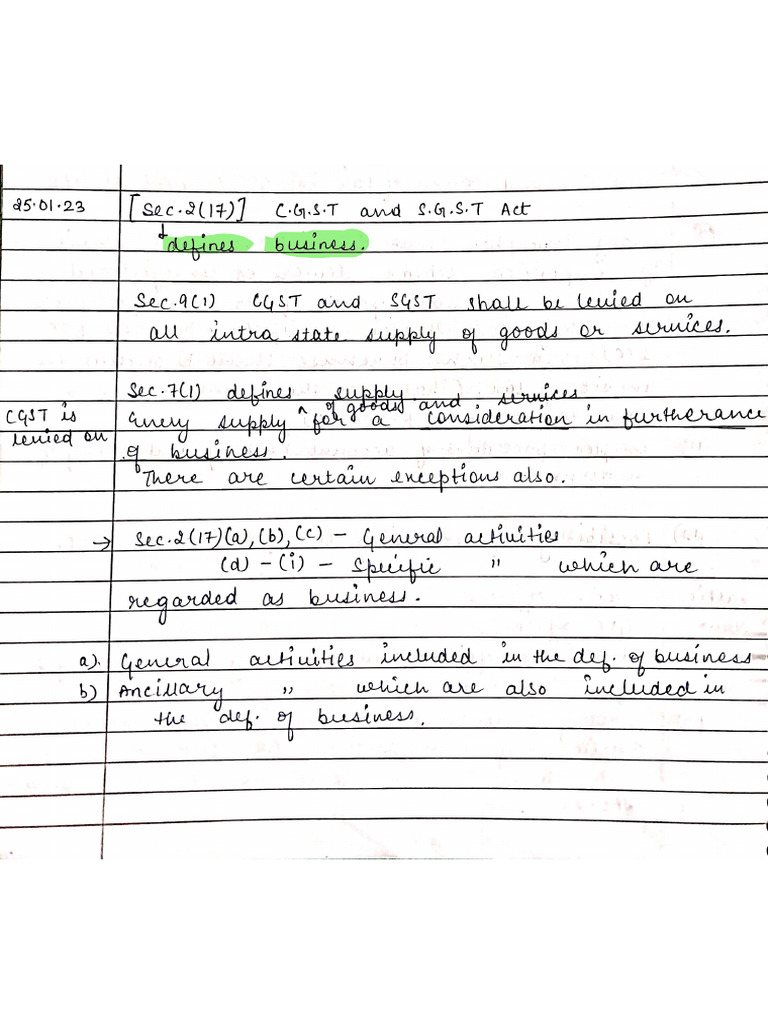 25.01.23 [Sec.2(17)] C.G.S.T and S.G.S.T Act
defines business.
Sec.9(1) CGST and SGST shall be levied on
all intra state supply of goods or services.
Sec.7(1) defines supply
CGST is levied on
Every supply ^ of goods and services for a consideration in furtherance
of business.
There are certain exceptions also.
→ Sec.2(17)(a),(b),(c) - General activities
(d) - (i) - Specific " which are
regarded as business.
a). General activities included in the def. of business
b) Ancillary " which are also included in
the def. of business.